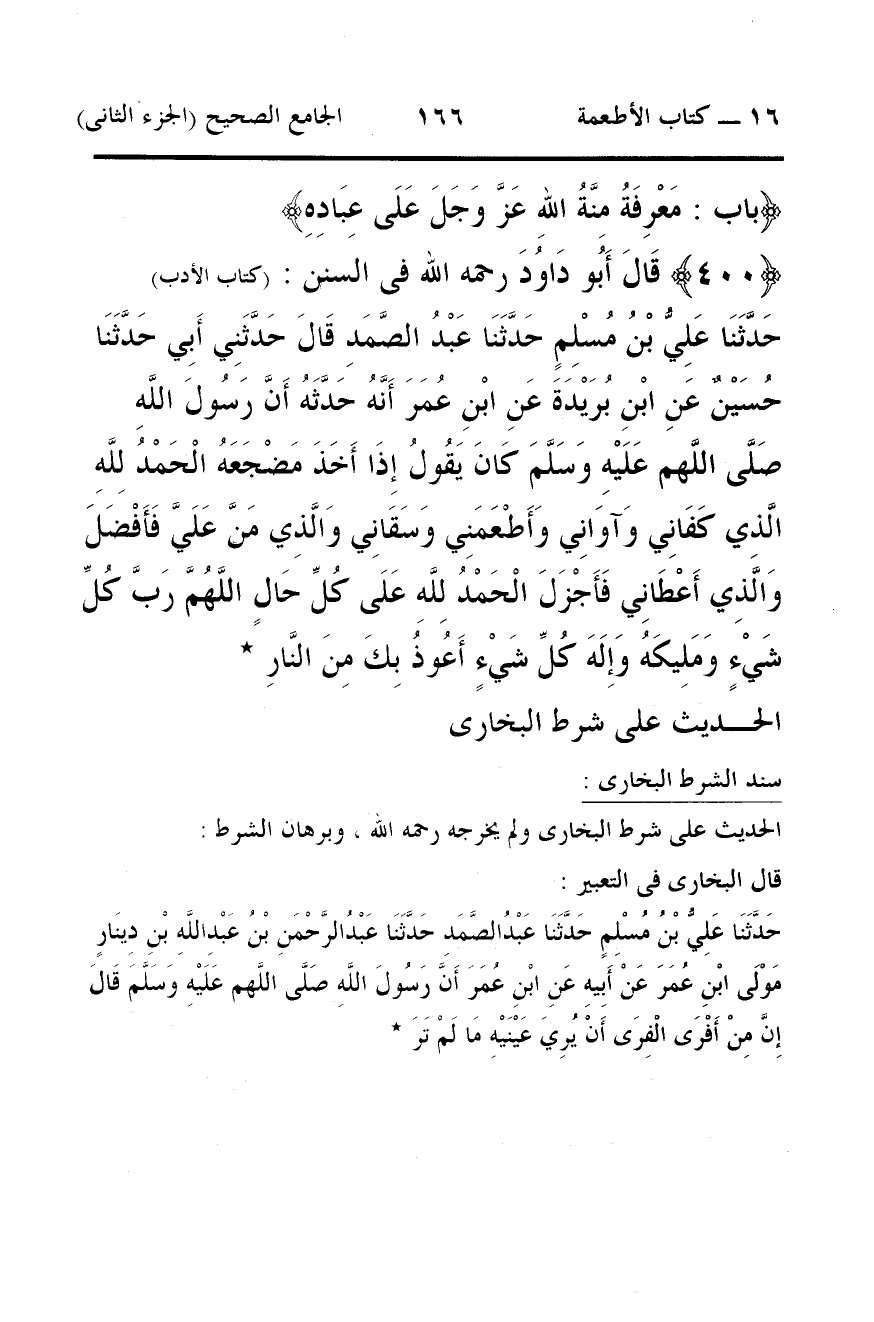 ١٦ ــ كتاب الأطعمة ١٦٦ الجامع الصحيح (الجزء الثانى)
﴿باب : مَعْرِفَةُ مِنَّةُ اللهِ عَزَّ وَجَلَ عَلَى عِبَادِهِ﴾
﴿٤٠٠﴾ قَالَ أَبُو دَاوُدَ رحمه الله فى السنن : (كتاب الأدب)
حَدَّثَنَا عَلِيُّ بْنُ مُسْلِمٍ حَدَّثَنَا عَبْدُ الصَّمَدِ قَالَ حَدَّثَنِي أَبِي حَدَّثَنَا
حُسَيْنٌ عَنِ ابْنِ بُرَيْدَةَ عَنِ ابْنِ عُمَرَ أَنَّهُ حَدَّثَهُ أَنَّ رَسُولَ اللَّهِ
صَلَّى اللَّهم عَلَيْهِ وَسَلَّمَ كَانَ يَقُولُ إِذَا أَخَذَ مَضْجَعَهُ الْحَمْدُ لِلَّهِ
الَّذِي كَفَانِي وَآوَانِي وَأَطْعَمَنِي وَسَقَانِي وَالَّذِي مَنَّ عَلَيَّ فَأَفْضَلَ
وَالَّذِي أَعْطَانِي فَأَجْزَلَ الْحَمْدُ لِلَّهِ عَلَى كُلِّ حَالٍ اللَّهُمَّ رَبَّ كُلِّ
شَيْءٍ وَمَلِيكَهُ وَإِلَهَ كُلِّ شَيْءٍ أَعُوذُ بِكَ مِنَ النَّارِ *
الحـــديث على شرط البخارى
سند الشرط البخارى :
الحديث على شرط البخارى ولم يخرجه رحمه الله ، وبرهان الشرط :
قال البخارى فى التعبير :
حَدَّثَنَا عَلِيُّ بْنُ مُسْلِمٍ حَدَّثَنَا عَبْدُالصَّمَدِ حَدَّثَنَا عَبْدُالرَّحْمَنِ بْنُ عَبْدِاللَّهِ بْنِ دِينَارٍ
مَوْلَى ابْنِ عُمَرَ عَنْ أَبِيهِ عَنِ ابْنِ عُمَرَ أَنَّ رَسُولَ اللَّهِ صَلَّى اللَّهم عَلَيْهِ وَسَلَّمَ قَالَ
إِنَّ مِنْ أَفْرَى الْفِرَى أَنْ يُرِيَ عَيْنَيْهِ مَا لَمْ تَرَ *